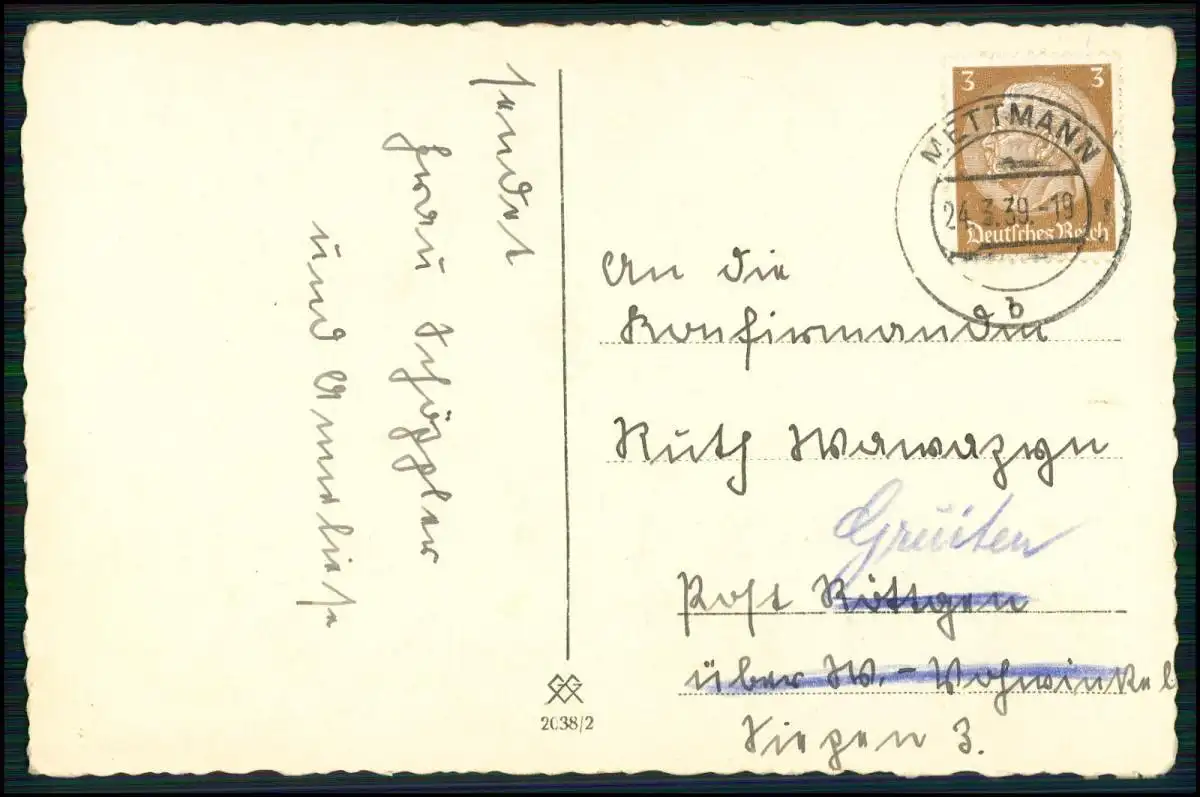 sendet
Frau Schöppler
und Anneliese
3 3
METTMANN
24.3.39.-19
Deutsches Reich
b
An die
Konfirmandin
Ruth
Gruiten
Post Röttgen
über W.-Vohwinkel
Siepen 3.
2038/2